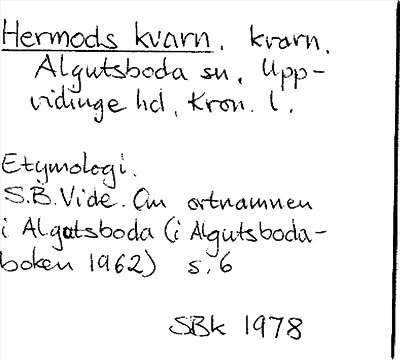 Hermods kvarn. kvarn.
Algutsboda sn. Upp-
vidinge hd, Kron. l.
Etymologi.
S.B. Vide. Om ortnamnen
i Algutsboda (i Algutsboda-
boken 1962) s. 6
SBk 1978